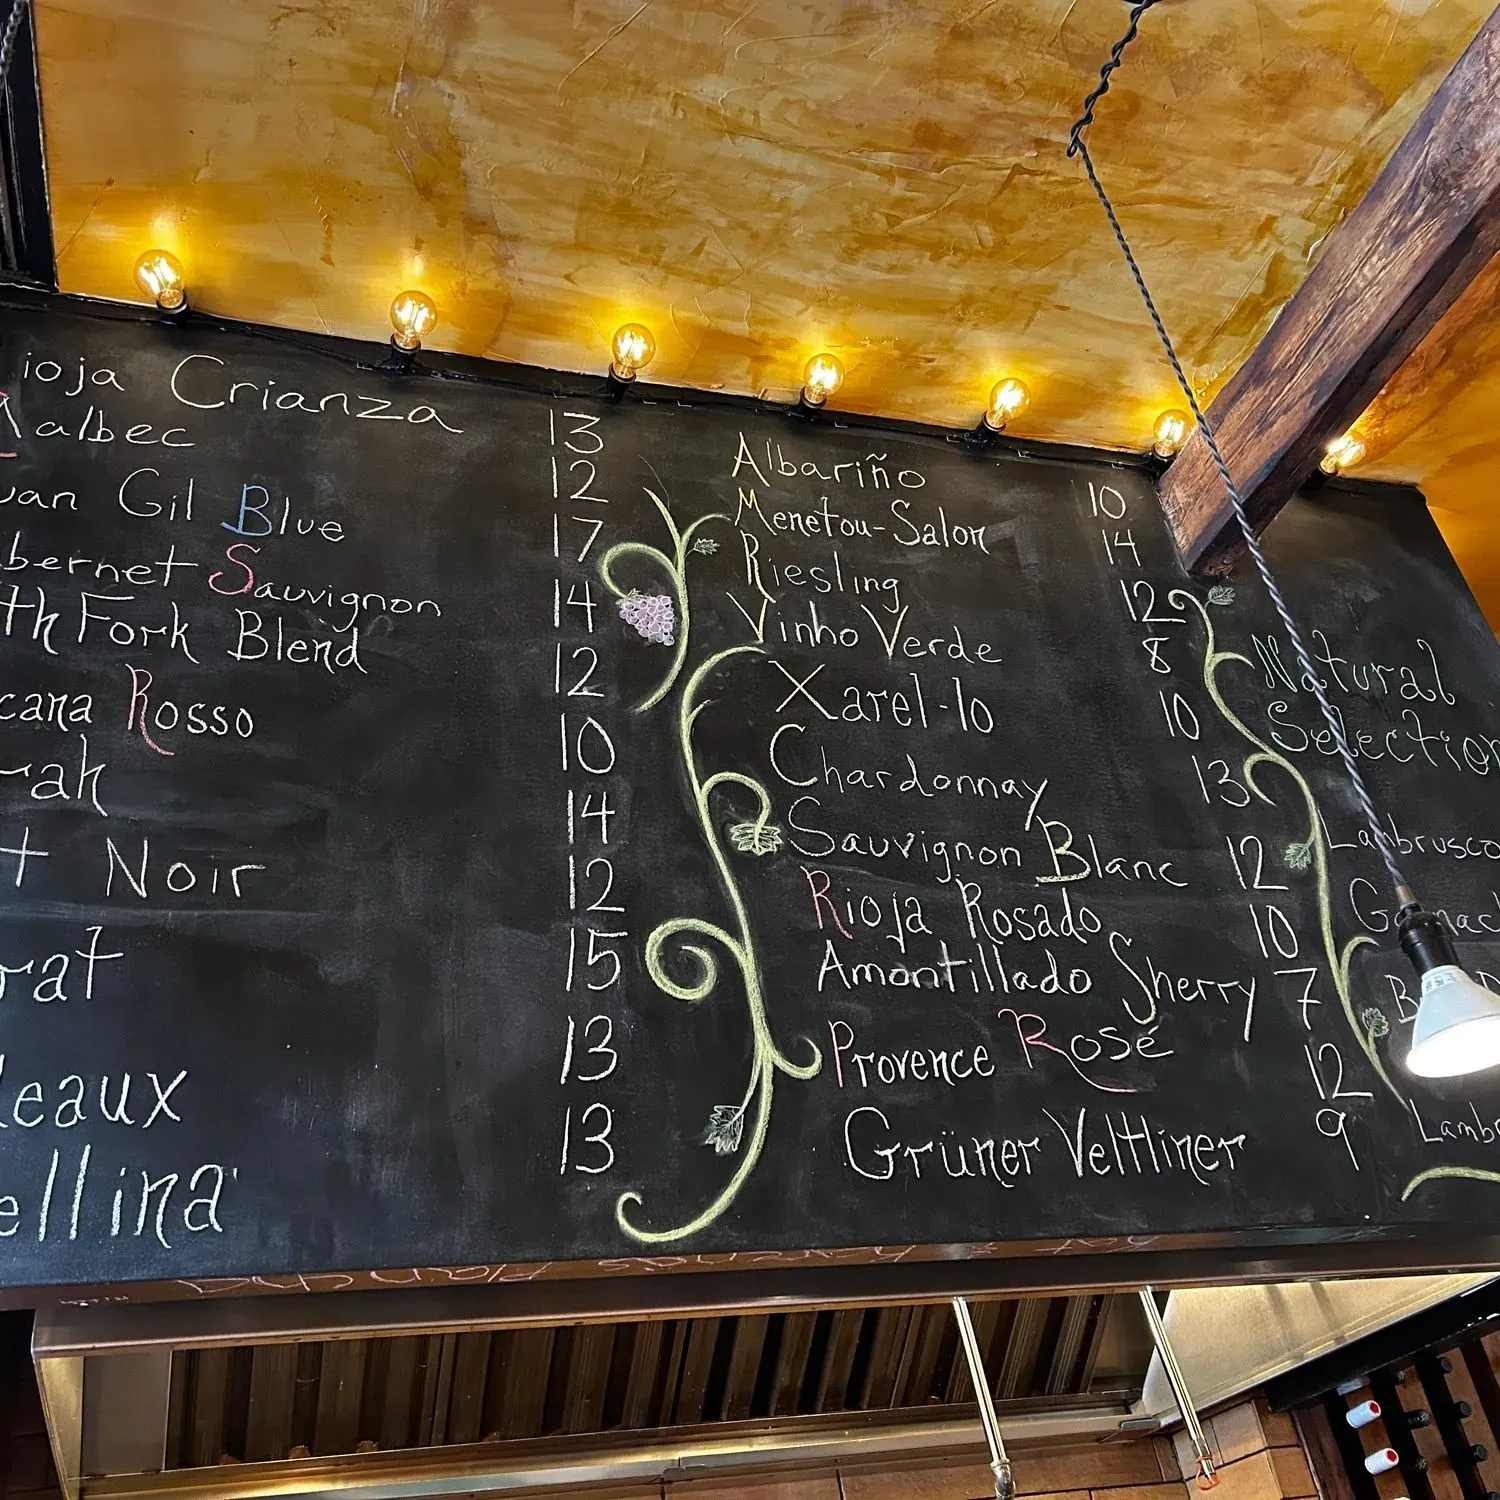 ioja Crianza 13
Malbec 12
uan Gil Blue 17
bernet Sauvignon 14
th Fork Blend 12
cana Rosso 10
rah 14
t Noir 12
rat 15
eaux 13
ellina 13
Albariño 10
Menetou-Salon 14
Riesling 12
Vinho Verde 8
Xarel-lo 10
Chardonnay 13
Sauvignon Blanc 12
Rioja Rosado 10
Amontillado Sherry 7
Provence Rosé 12
Grüner Veltliner 9
Natural
Selection
Lambrusco
Lambr